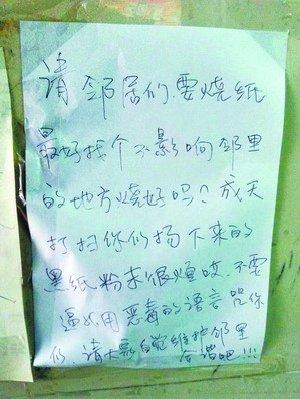 请邻居们.要烧纸
最好找个不影响邻里
的地方烧好吗?成天
打扫你们扬下来的
黑纸粉末很烦哎.不要
逼我用恶毒的语言咒你
们 请大家自觉维护邻里
合谐吧!!!